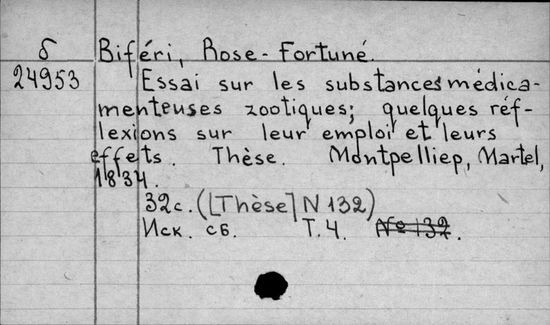 б Biféri, Rose-Fortuné.
24953 Essai sur les substances médica-
menteuses zootiques; quelques réf-
lexions sur leur emploi et leurs
effets. Thèse. Montpelliep, Martel,
1834.
32с. ([Thèse] N 132)
Иск. сб. Т.4. № 132.